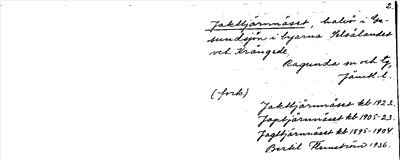 2.
Jakttjärnnäset, halvö i Ge-
sundsjön i byarna Selsålandet
och Krångede,
Ragunda sn och tg,
Jämtl. l.
(forts)
Jakttjärnnäset kb 1923.
Japtjärnnäset kb 1905-23.
Jagttjärnnäset kb 1895-1904.
Bertil Flemström 1936.